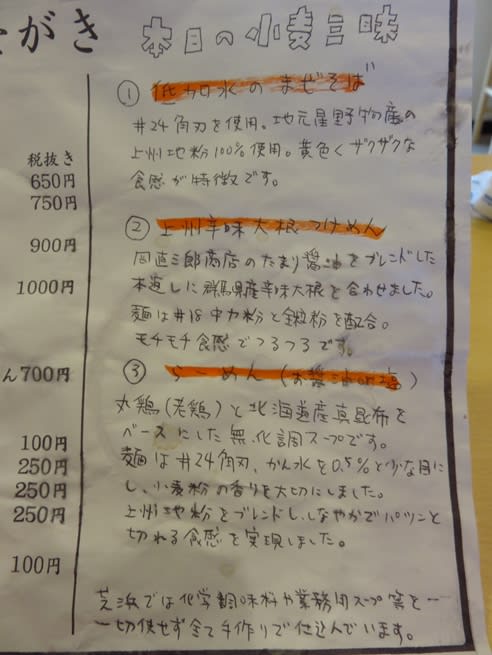 がき
税抜き
650円
750円
900円
1000円
ん700円
100円
250円
250円
250円
100円
本日の小麦三昧
① 低加水のまぜそば
#24角刃を使用。地元星野物産の
上州地粉100%使用。黄色くザクザクな
食感が特徴です。
② 上州辛味大根つけめん
岡直三郎商店のたまり醤油をブレンドした
本返しに群馬県産辛味大根を合わせました。
麺は#18中力粉と全粒粉を配合。
モチモチ食感でつるつるです。
③ らーめん(お醤油or塩)
丸鶏(老鶏)と北海道産真昆布を
ベースにした無化調スープです。
麺は#24角刃、かん水を0.5%と少な目に
し、小麦粉の香りを大切にしました。
上州地粉をブレンドし、しなやかでパツンと
切れる食感を実現しました。
芝浜では化学調味料や業務用スープ等を一
一切使せず全て手作りで仕込んでいます。